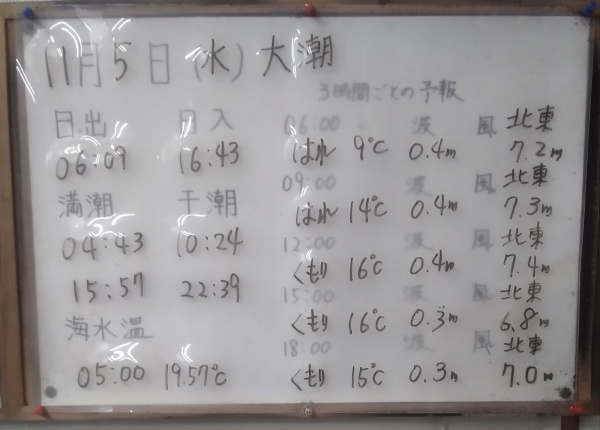 11月5日(水)大潮
3時間ごとの予報
日出 日入
06:09 16:43
満潮 干潮
04:43 10:24
15:57 22:39
海水温
05:00 19.57℃
06:00 波 風 北東
はれ 9℃ 0.4m 7.2m
09:00 波 風 北東
はれ 14℃ 0.4m 7.3m
12:00 波 風 北東
くもり 16℃ 0.4m 7.4m
15:00 波 風 北東
くもり 16℃ 0.3m 6.8m
18:00 波 風 北東
くもり 15℃ 0.3m 7.0m